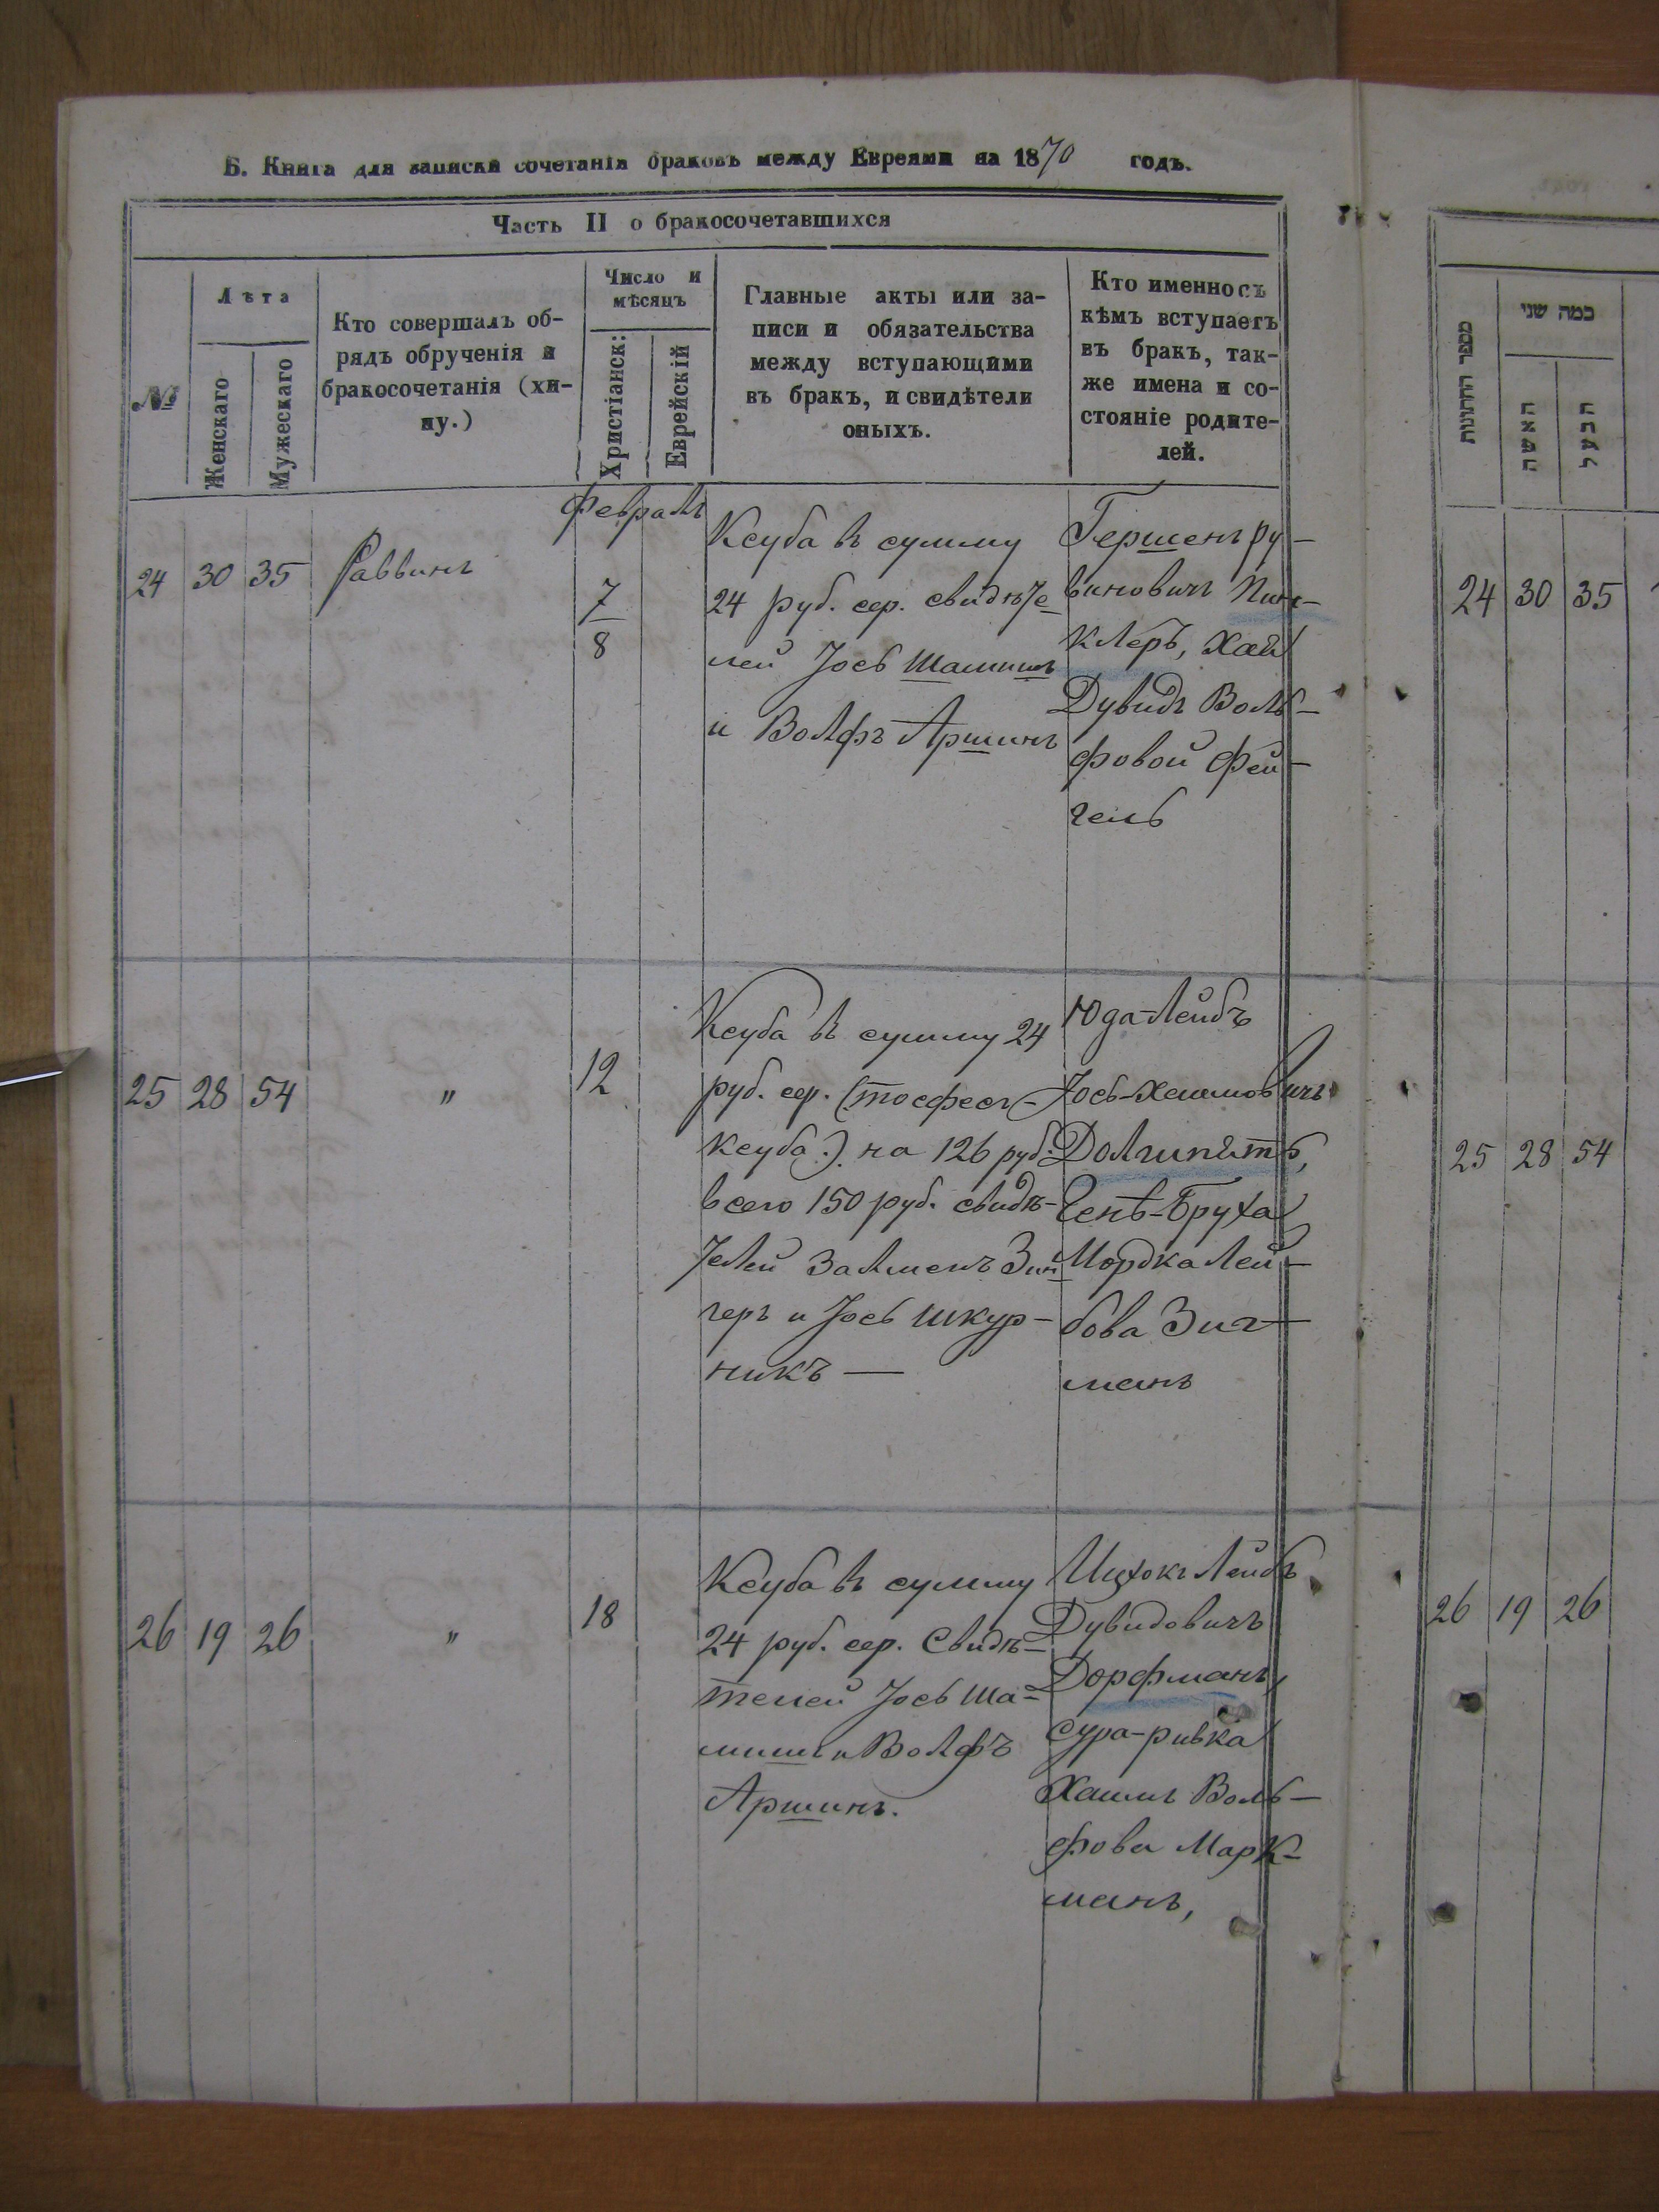 Б. Книга для записки сочетанія браковъ между Евреями на 1870 годъ.
Часть II о бракосочетавшихся
№
Лѣта
Женскаго
Мужескаго
Кто совершалъ об-
рядъ обрученія и
бракосочетанія (хи-
пу.)
Число и
мѣсяцъ
Христіанск:
Еврейскій
Главные акты или за-
писи и обязательства
между вступающими
въ бракъ, и свидѣтели
оныхъ.
Кто именно съ
кѣмъ вступаетъ
въ бракъ, так-
же имена и со-
стояніе родите-
лей.
מספר החתונות
כמה שני
האשה
הבעל
24 30 35 Раввинъ
Февраль
7
8
Ксуба въ сумму
24 руб. сер. свидѣте-
лей Іось Шамишъ
и Волфъ Аршинъ
Гершенъ Ру-
виновичъ Пин-
клеръ, Хая
Дувидъ Воль-
фовой Фей-
гель
24 30 35
25 28 54 " 12
Ксуба въ сумму 24
руб. сер. (тосфесъ-
ксуба). на 126 руб.
всего 150 руб. свидѣ-
телей Залменъ Зин-
геръ и Іось Шкур-
никъ —
Юда-Лейбъ
Іось-Хаимовичъ
Долгипять,
Генѣ-Бруха
Мордка Лей-
бова Зиг-
манъ
25 28 54
26 19 26 " 18
Ксуба въ сумму
24 руб. сер. Свидѣ-
телей Іось Ша-
мишъ и Волфъ
Аршинъ.
Ицхокъ Лейбъ
Дувидовичъ
Дорфманъ,
Сура-Ривка
Хаимъ Воль-
фова Марк-
манъ,
26 19 26